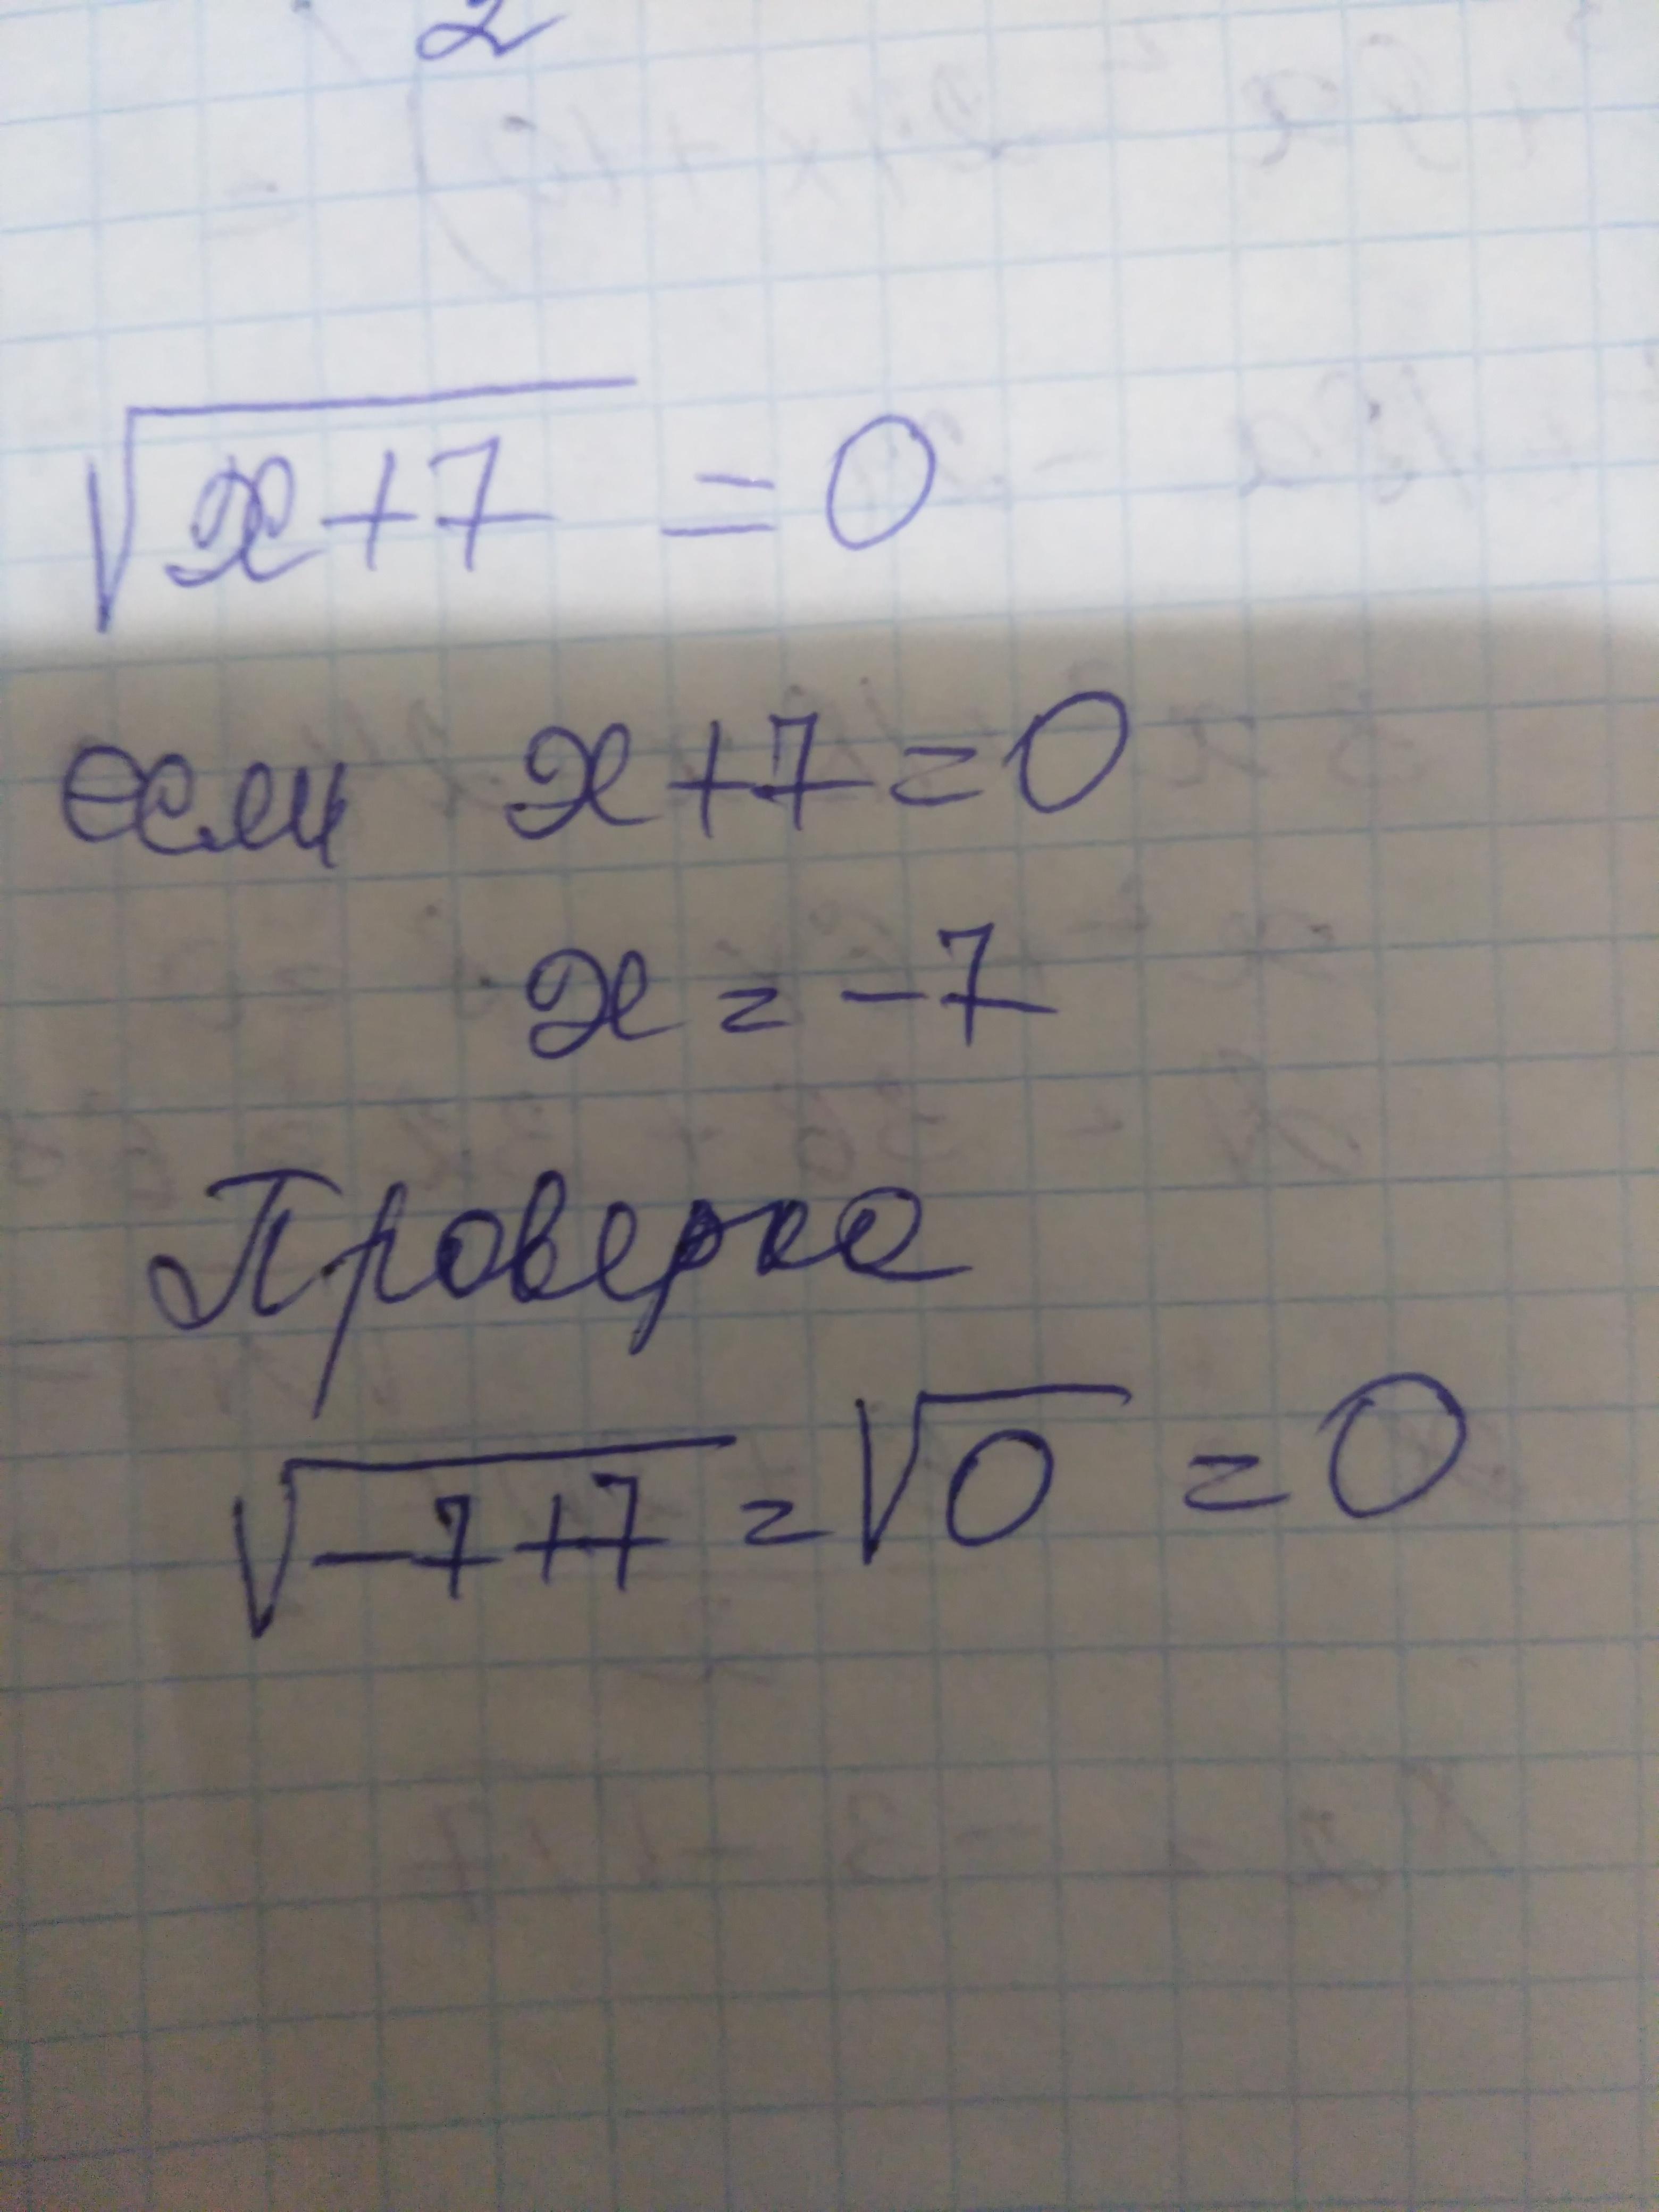 2
√x+7 = 0
если x+7=0
x = -7
Проверка
√-7+7 = √0 = 0